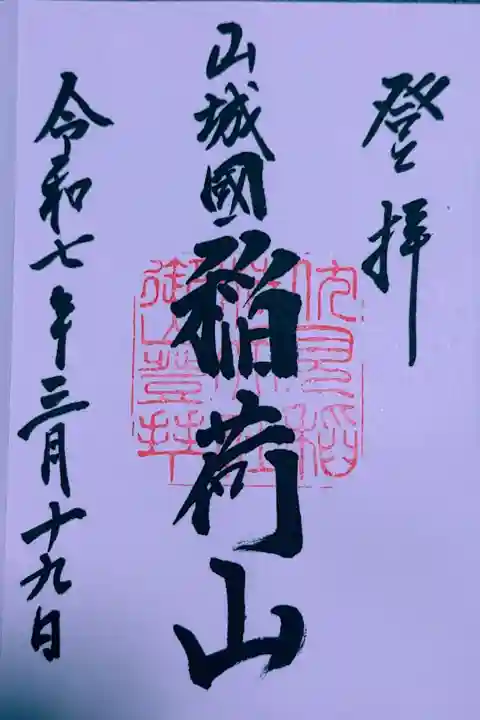 登拝
山城國稲荷山
令和七年三月十九日
伏見稲
荷大社
御山登拝